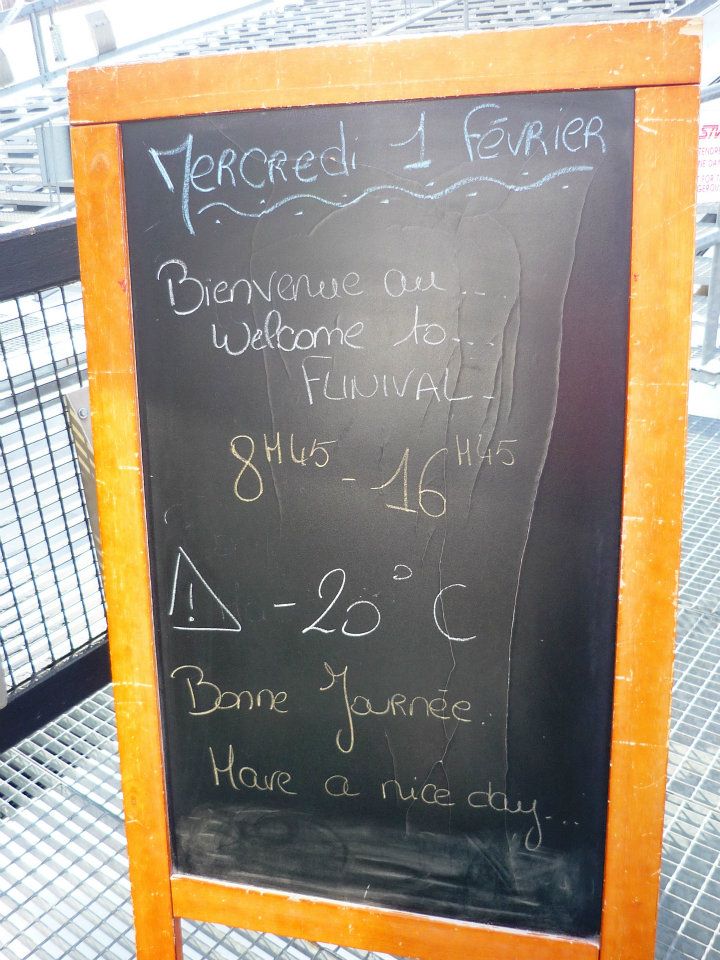 MERCREDI 1 FÉVRIER
Bienvenue au...
Welcome to...
FUNIVAL.
8H45 - 16H45
! -20°C
Bonne Journée.
Have a nice day...